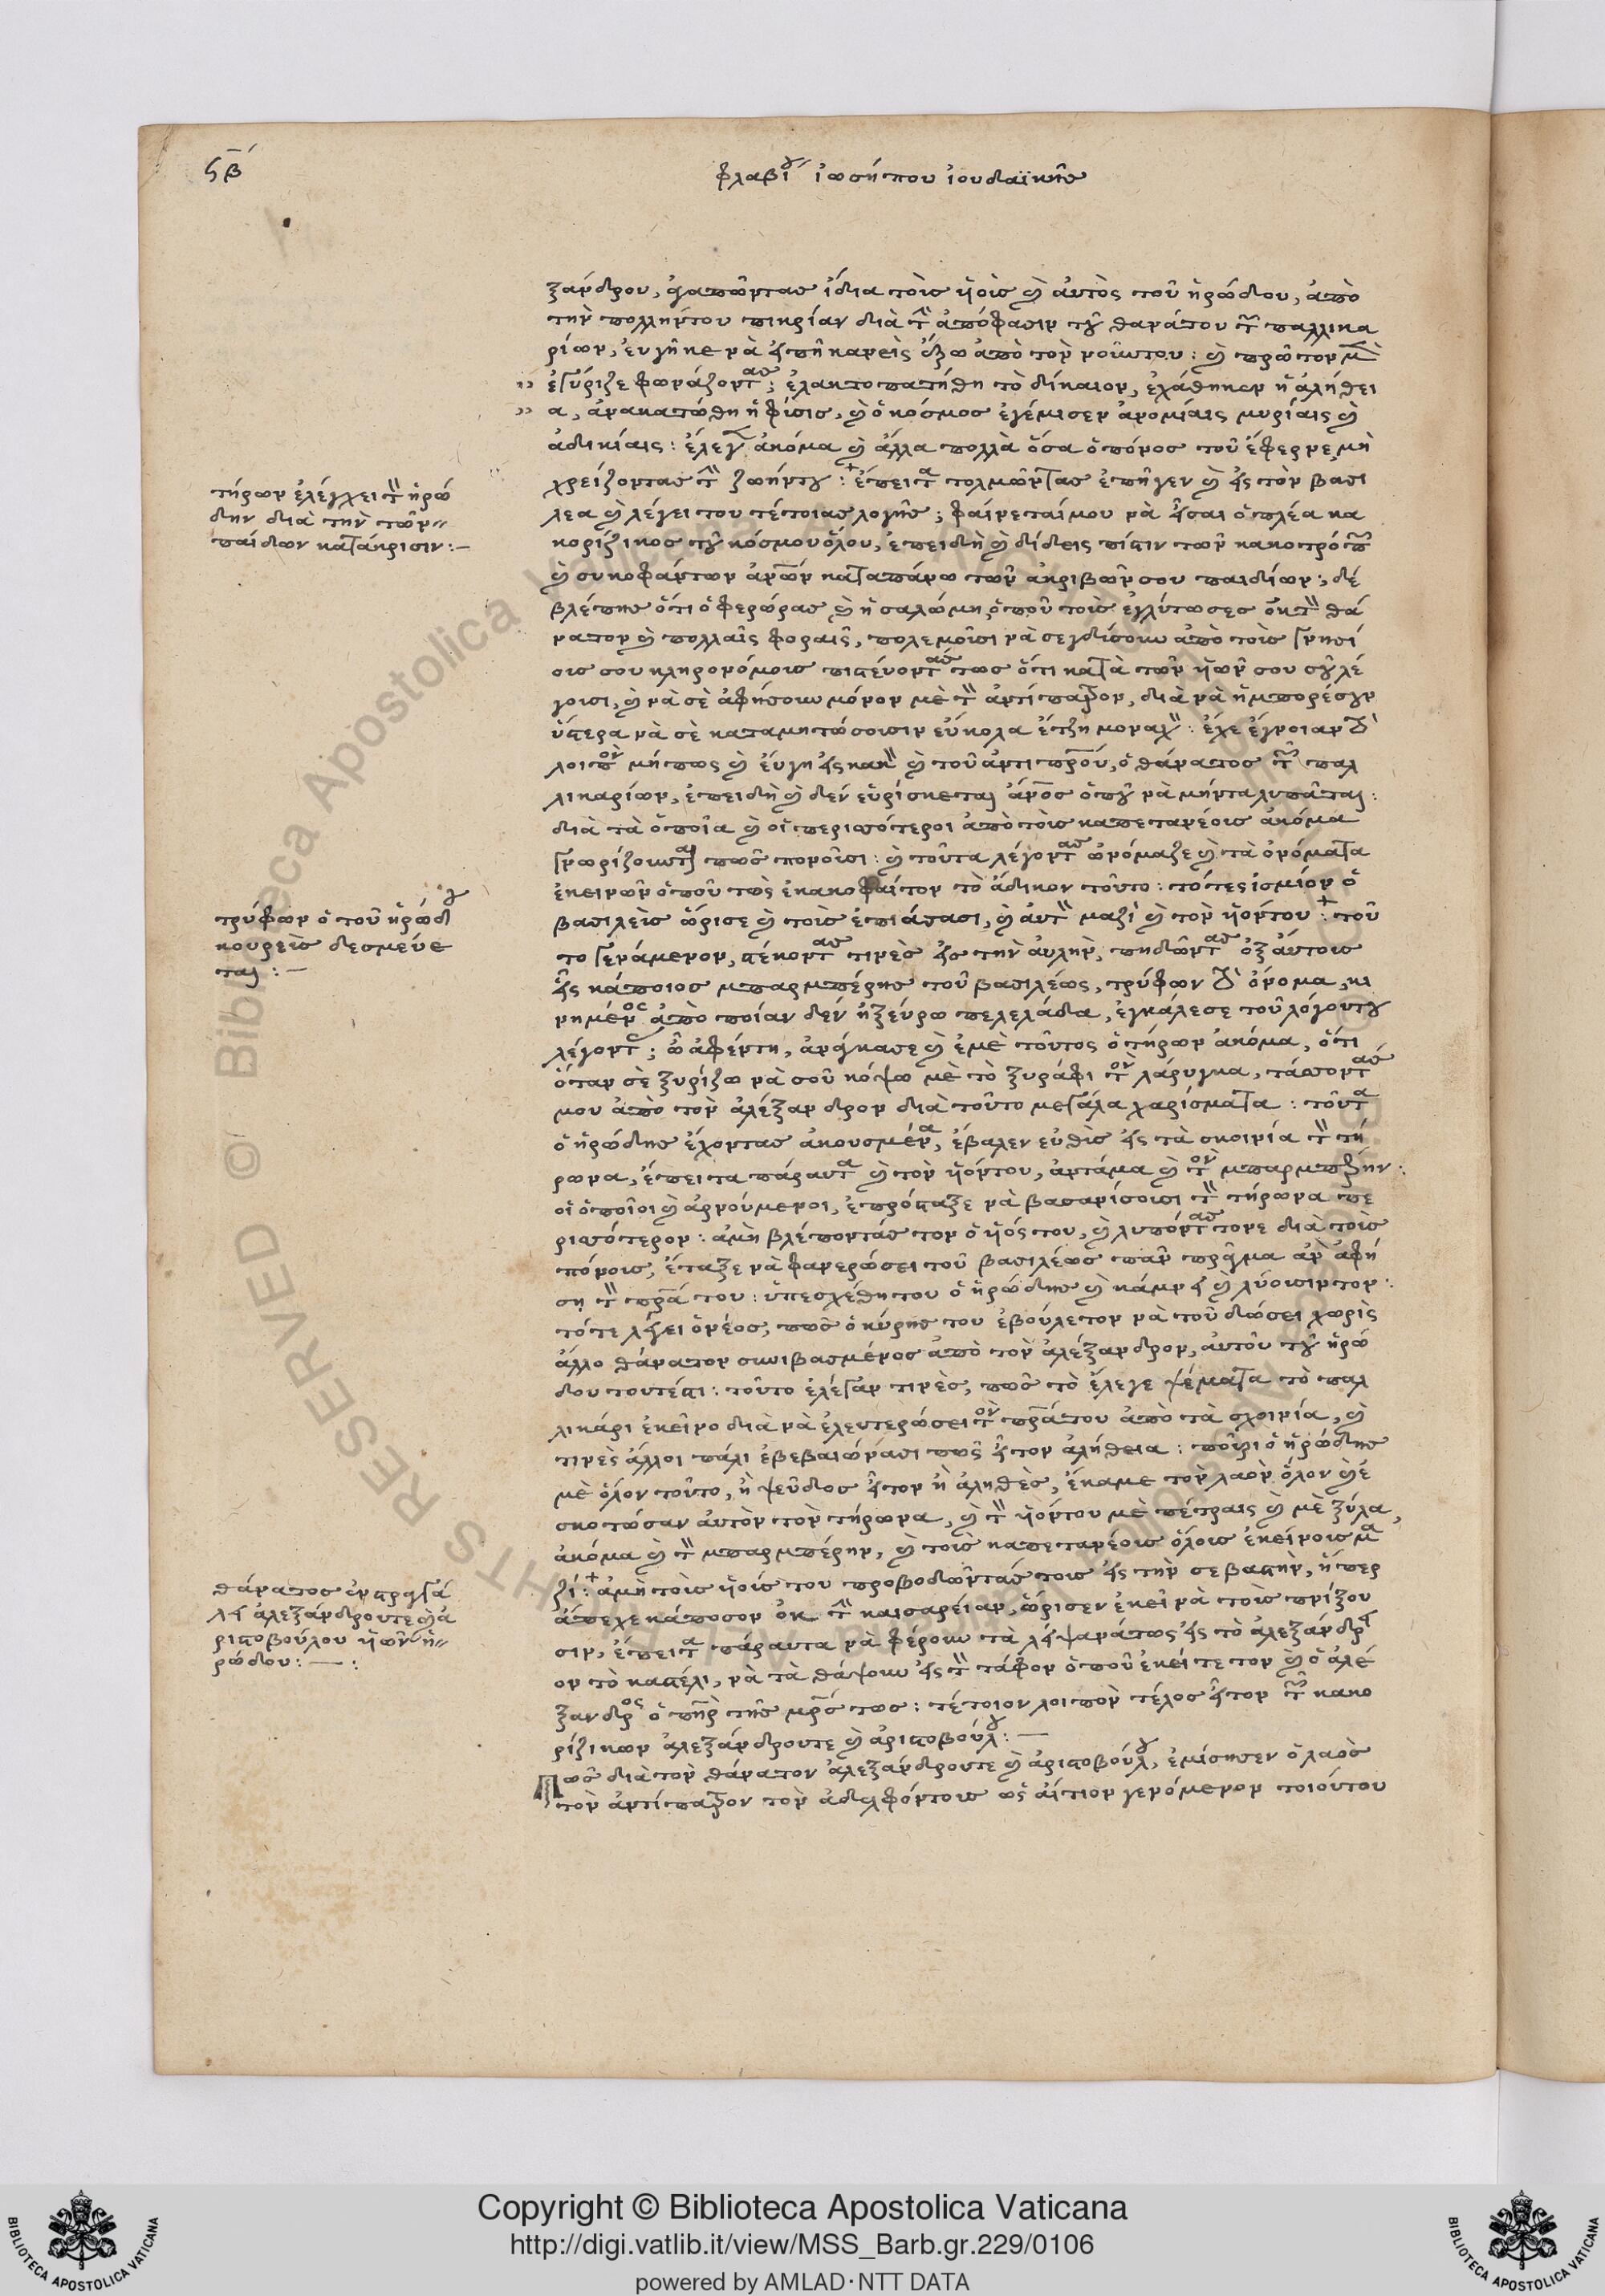 ϟβ´
φλαβίου ἰωσήπου ἰουδαϊκῆς
ξάνδρου, ἀγαπῶντας ἴδια τοὶς ἡοὶς καὶ ἀυτὸς τοῦ ἡρώδου, ἀπὸ
τὴν πολλήντου πικρίαν διὰ τὴν ἀπόφασιν τοῦ θανάτου τῶν παλλικα
ρίων, ἐυγῆκε νὰ εἰπῆ κανεὶς ἔξω ἀπὸ τὸν νοῦντου: καὶ πρῶτον μὲν
ἐγύριζε φωνάζοντας; ἐλακτοπατήθη τὸ δίκαιον, ἐχάθηκεν ἡ ἀλήθει
α, ἀνακατώθη ἡ φίσις, καὶ ὁ κόσμος ἐγέμισεν ἀνομίαις μυρίαις καὶ
ἀδικίαις: ἔλεγεν ἀκόμα καὶ ἄλλα πολλὰ ὅσα ὁ πόνος τοῦ ἔφερνε, μὴ
χρείζοντας τὴν ζωήντου: ἔπειτα τολμῶντας ἐπῆγεν καὶ εἰς τὸν βασι
λέα καὶ λέγει του τέτοιας λογῆς; φαίνεταί μου νὰ εἶσαι ὁ πλέα κα
κορίζικος τοῦ κόσμου ὅλου, ἐπειδὴ καὶ δίδεις πίστιν τῶν κακοτρόπων
καὶ συκοφάντων ἀνθρώπων κατὰ πάνω τῶν ἀκριβῶν σου παιδίων; δὲ
βλέπης ὅτι ὁ φερώρας καὶ ἡ σαλώμη, ὁποῦ τοὶς ἐγλίτωσες ἐκ τὸν θά
νατον καὶ πολλαῖς φοραῖς, πολεμοῦσι νὰ σεγδίσουν ἀπὸ τοὶς γνησί
οις σου κληρονόμοις πιστέυοντάς τως ὅτι κατὰ τῶν ἡῶν σου σοῦ λέ
γουσι, καὶ νὰ σὲ ἀφήσουν μόνον μὲ τὸν ἀντίπατρον, διὰ νὰ ἡμπορέσουν
ὕστερα νὰ σὲ καταμητώσουσιν ἔυκολα ἔτζη μοναχόν: ἔχε ἔγνοιαν διὰ
λοιπὸν μήπως καὶ ἔυγη εἰς κακὸν καὶ τοῦ ἀντιπάτρου, ὁ θάνατος τῶν παλ
λικαρίων, ἐπειδὴ καὶ δὲν εὑρίσκεται ἄνθρωπος ὁποῦ νὰ μήντα λυπᾶται:
διὰ τὰ ὁποῖα καὶ οἱ περισσότεροι ἀπὸ τοὶς καπετανέοις ἀκόμα
γνωρίζουνται πῶς πονοῦσι: καὶ τοῦτα λέγοντας ὠνόμαζε καὶ τὰ ὀνόματα
ἐκεινῶν ὁποῦ τὼς ἐκακοφαίτον τὸ ἄδικον τοῦτο: τότες ἰσμίον ὁ
βασιλεὶς ὥρισε καὶ τοὶς ἐπιάσασι, καὶ ἀυτὸν μαζὶ καὶ τὸν ἡόντου: τοῦ
το γενάμενον, στέκοντας τινὲς εἰς τὴν ἀυλὴν, πηδῶντας ἐξ ἀύτοις
εἷς κάποιος μπαρμπέρης τοῦ βασιλέως, τρύφων τὸ ὄνομα, κι
νημένος ἀπὸ ποίαν δὲν ἠξεύρω πελελάδα, ἐγκάλεσε τοῦ λόγουτου
λέγοντας; ὦ ἀφέντη, ἀνάγκασε καὶ ἐμὲ τοῦτος ὁ τήρων ἀκόμα, ὅτι
ὅταν σὲ ξυρίζω νὰ σοῦ κόψω μὲ τὸ ξυράφι τὸν λάρυγκα, τάσσοντάς
μου ἀπὸ τὸν ἀλέξανδρον διὰ τοῦτο μεγάλα χαρίσματα: τοῦτα
ὁ ἡρώδης ἔχοντας ἀκουσμένα, ἔβαλεν εὐθὶς εἰς τὰ σκοινία τὸν τή
ρωνα, ἔπειτα πάραυτα καὶ τὸν ἡόντου, ἀντάμα καὶ τὸν μπαρμπέρην:
οἱ ὁποῖοι καὶ ἀρνούμενοι, ἐπρόσταξε νὰ βασανίσουσι τὸν τήρωνα πε
ρισσότερον: ἀμὴ βλέποντάς τον ὁ ἡός του, καὶ λυπόντας τονε διὰ τοὶς
πόνοις, ἔταξε νὰ φανερώσει τοῦ βασιλέως πᾶν πρᾶγμα ἂν ἀφή
ση τὸν πατέρα του: ὑπεσχέθη του ὁ ἡρώδης καὶ κάμνει καὶ λύουσιντον:
τότε λέγει ὁ νέος, πῶς ὁ κύρης του ἐβούλετον νὰ τοῦ δώσει χωρὶς
ἄλλο θάνατον συνιβασμένος ἀπὸ τὸν ἀλέξανδρον, ἀυτοῦ τοῦ ἡρώ
δου τουτέστι: τοῦτο ἐλέγαν τινὲς, πῶς τὸ ἔλεγε ψέματα τὸ παλ
λικάρι ἐκεῖνο διὰ νὰ ἐλευτερώσει τὸν πατέρα του ἀπὸ τὰ σχοινία, καὶ
τινὲς ἄλλοι πάλι ἐβεβαιώνασι πῶς εἶτον ἀλήθεια: ποῦρι ὁ ἡρώδης
μὲ ὅλον τοῦτο, ἢ ψεῦδος εἶτον ἢ ἀληθὲς, ἔκαμε τὸν λαὸν ὅλον καὶ ἐ
σκοτώσαν ἀυτὸν τὸν τήρωνα, καὶ τὸν ἡόντου μὲ πέτραις καὶ μὲ ξύλα,
ἀκόμα καὶ τὸν μπαρμπέρην, καὶ τοὶς καπετανέοις ὅλοις ἐκείνοις μα
ζί: ἀμὴ τοὶς ἡοίς του προβοδῶντάς τοις εἰς τὴν σεβαστὴν, ἥπερ
ἄπεχε κάποσον ἐκ τὴν καισαρείαν, ὥρισεν ἐκεῖ νὰ τοὶς πνίξου
σιν, ἔπειτα πάραυτα νὰ φέρουν τὰ λείψανάτως εἰς τὸ ἀλεξάνδρι
ον τὸ καστέλι, νὰ τὰ θάψουν εἰς τὸν τάφον ὁποῦ ἐκείτετον καὶ ὁ ἀλέ
ξανδρος ὁ πατὴρ τῆς μητρός τως: τέτοιον λοιπὸν τέλος εἶτον τῶν κακο
ρίζικων ἀλεξάνδρουτε καὶ ἀριστοβούλου: —
Πῶς διὰ τὸν θάνατον ἀλεξάνδρουτε καὶ ἀριστοβούλου, ἐμίσησεν ὁ λαὸς
τὸν ἀντίπατρον τὸν ἀδελφόντοις ὡς αἴτιον γενόμενον τοιούτου
τήρων ἐλέγχει τὸν ἡρώ
δην διὰ τὴν τῶν
παίδων κατάκρισιν: —
τρύφων ὁ τοῦ ἡρώδου
κουρεὶς δεσμεύε
ται: —
θάνατος
ἀλεξάνδρουτε καὶ ἀ
ριστοβούλου ἡῶν ἡ
ρώδου: — :
Copyright © Biblioteca Apostolica Vaticana
http://digi.vatlib.it/view/MSS_Barb.gr.229/0106
powered by AMLAD·NTT DATA
BIBLIOTECA APOSTOLICA VATICANA
BIBLIOTECA APOSTOLICA VATICANA